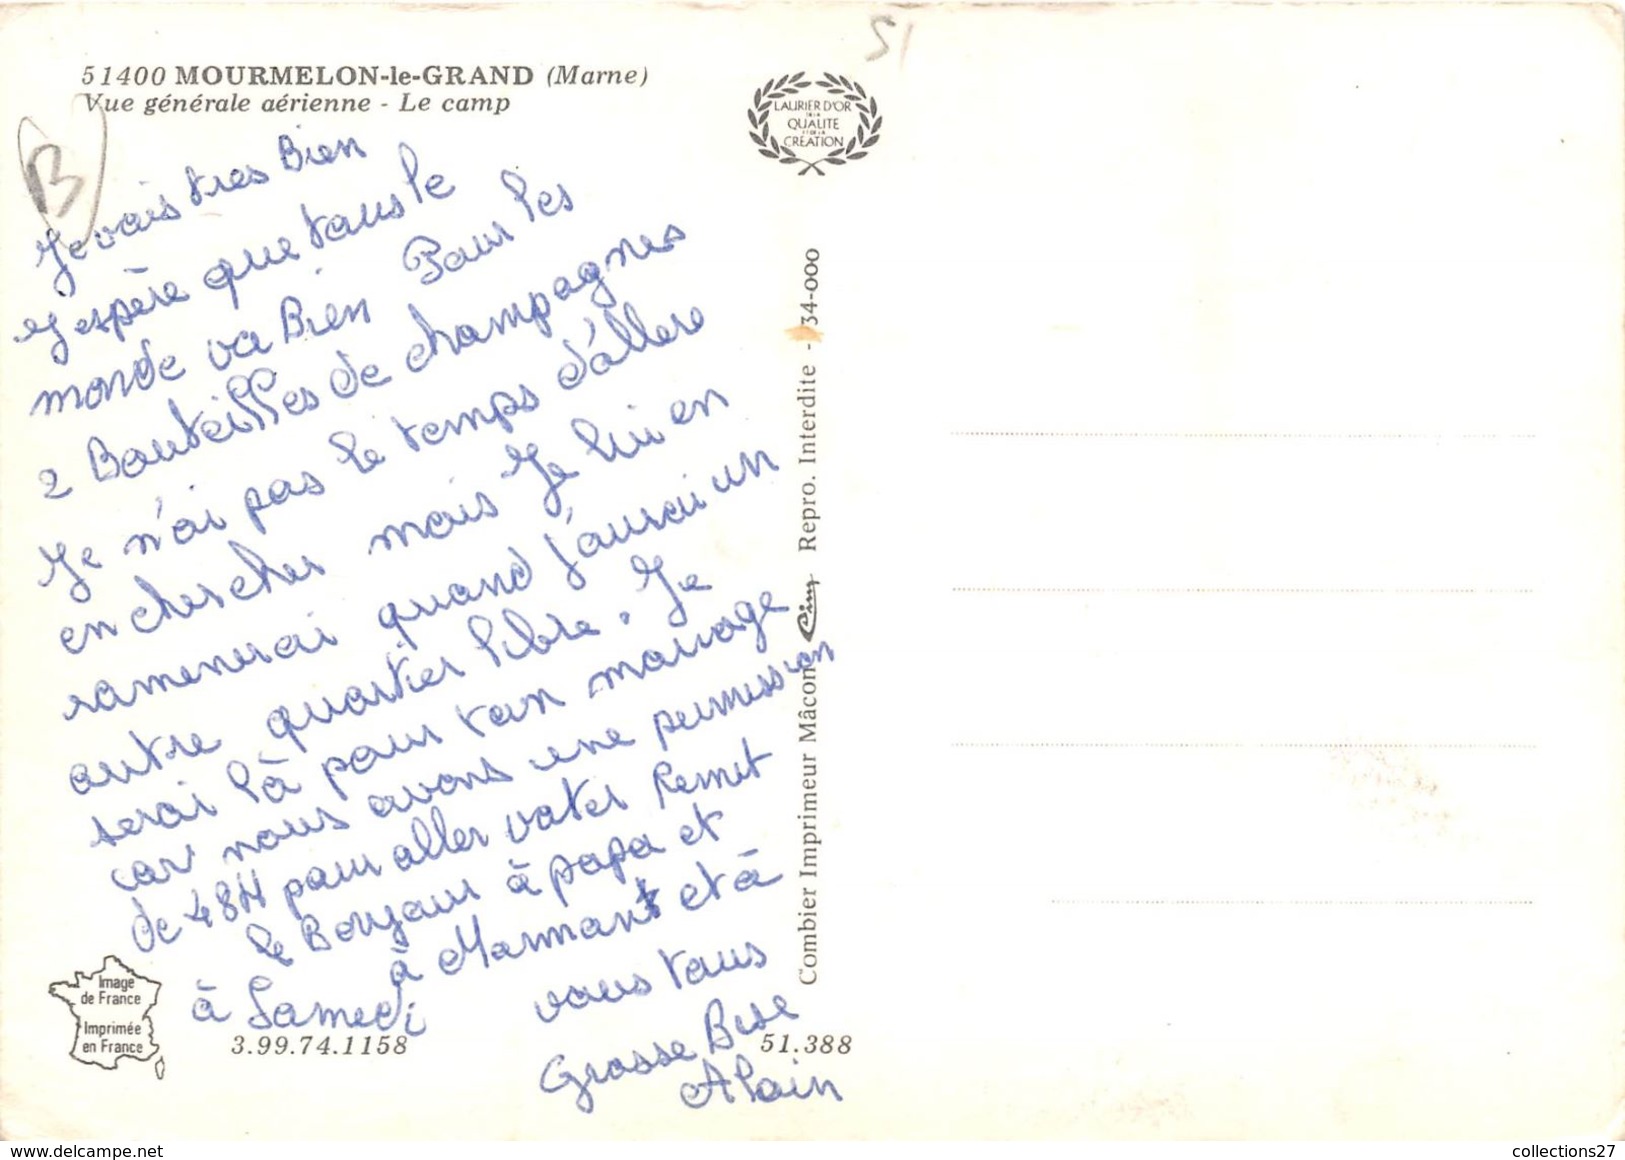 51400 MOURMELON-le-GRAND (Marne)
Vue générale aérienne - Le camp
51
B
LAURIER D'OR
DE LA
QUALITE
ET DE LA
CREATION
Je vais tres Bien
J'espère que tous le
monde va Bien Pour les
2 Bouteilles de champagnes
Je n'ai pas le temps d'allere
en chercher mais Je lui en
ramenerai quand j'aurai un
autre quartier libre. Je
serai là pour ton mariage
car nous avons une permission
de 48H pour aller voter Remet
le Bonjour à papa et
à Maman et à
vous tous
à Samedi
Grosse Bise
Alain
Image
de France
Imprimée
en France
3.99.74.1158
51.388
Combier Imprimeur Mâcon Cim Repro. Interdite - 34-000
collections27